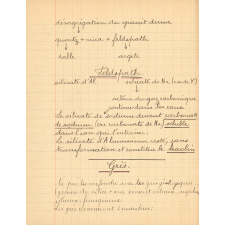 désagrégation du granit donne
quartz + mica + feldspath
sable argile
Feldspath
silicate d'Al silicate de Na (ou de K)
action du gaz carbonique
contenu dans les eaux
Le silicate de sodium devient carbonate
de sodium (ou carbonate de Na) soluble
dans l'eau qui l'entraîne.
Le silicate d'Aluminium reste, sans
transformation et constitue le kaolin
Grès.
Ne pas les confondre avec les grès géologiques